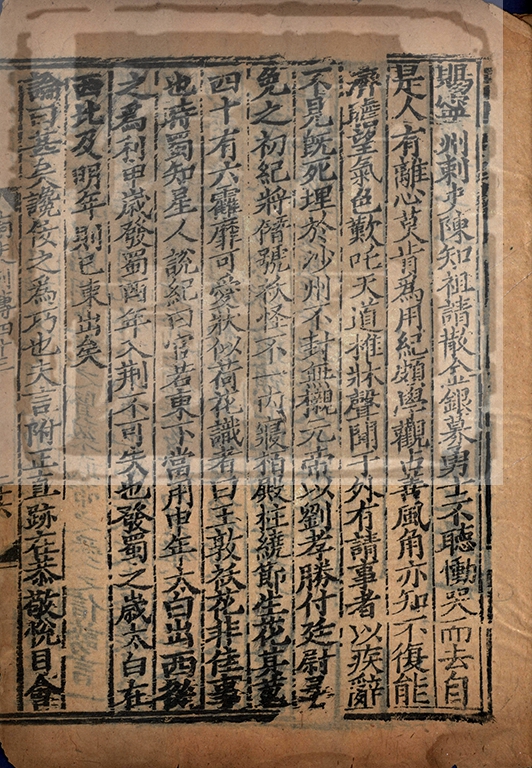 賜寧州刺史陳知祖請散金銀募勇士不聽慟哭而去自
是人有離心莫肯爲用紀頗學觀占善風角亦知不復能
濟瞻望氣色歎吒天道椎牀聲聞于外有請事者以疾辭
不見既死埋於沙州不封無櫬元帝以劉孝勝付廷尉尋
免之初紀將僭號祅怪不一內寢柏殿柱繞節生花其莖
四十有六靃靡可愛狀似荷花識者曰王敦祅花非佳事
也時蜀知星人說紀曰官若東下當用申年太白出西從
之爲利申歲發蜀酉年入荆不可失也發蜀之歲太白在
西比及明年則已東出矣
論曰甚矣讒佞之爲巧也夫言附正直跡在恭敬悅目會
南史列傳四十三